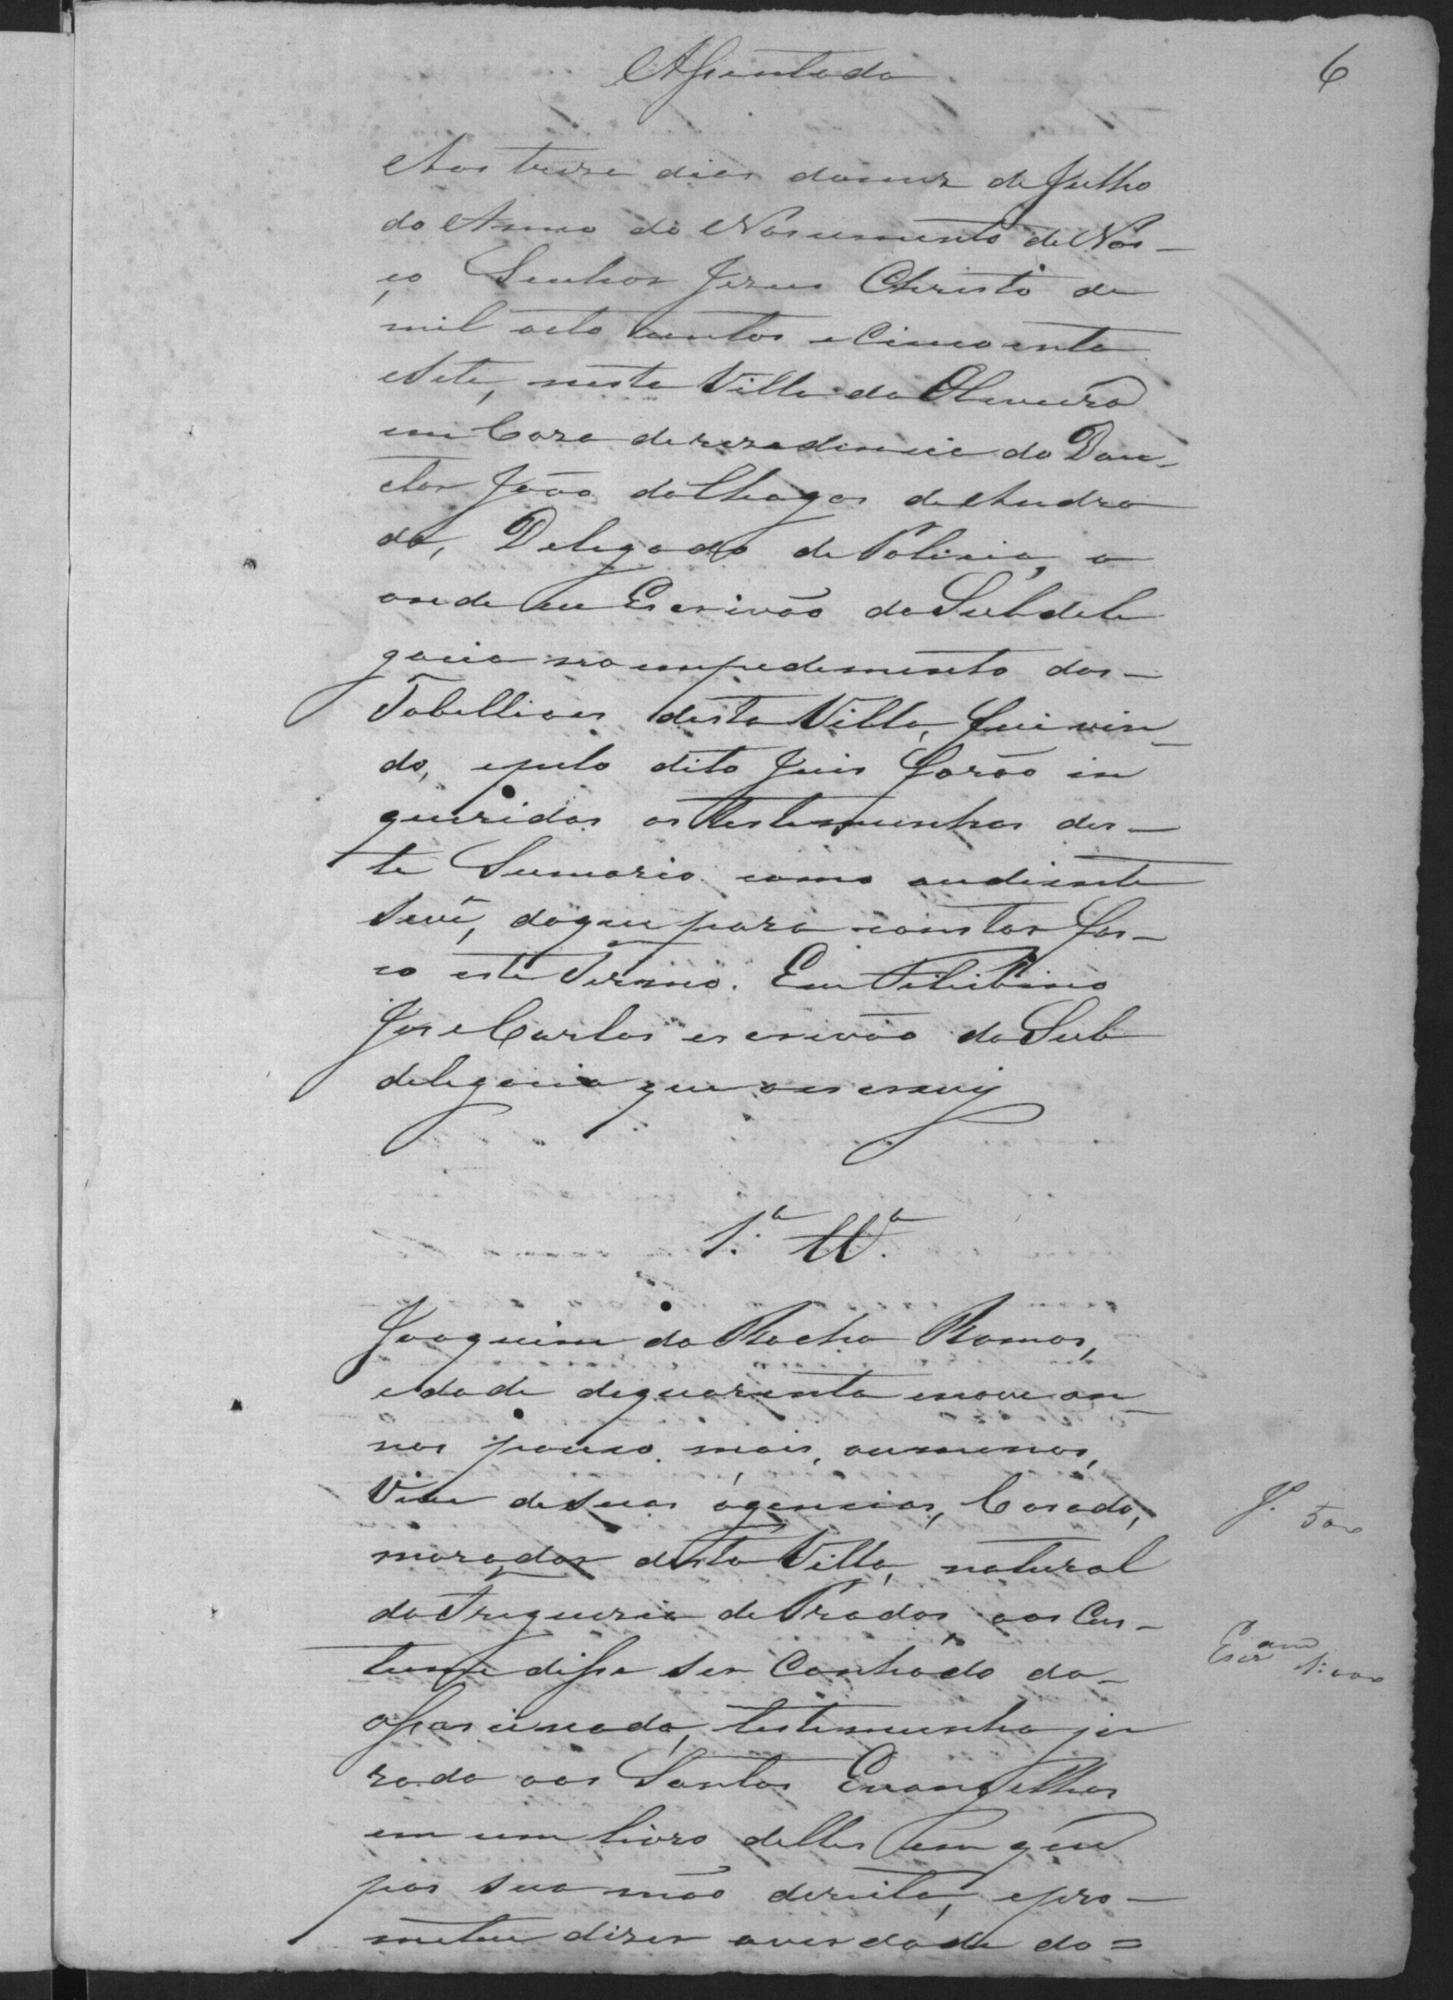 Assentada
6
Aos treze dias do mez de Julho
do Anno do Nascimento de Nos-
ço Senhor Jesus Christo de
mil oito centos e Cincoenta
e Sete, nesta Villa da Oliveira
em Casa de rezedencia do Dou-
ctor João das Chagas de Andra
de, Delegado de Policia, a
onde eu Escrivão da Subdele
gacia no empedimento dos-
Tabelliaes desta Villa, fui vin-
do, e pelo dito Juis forão in
queridas as Testemunhas des-
te Sumario como audiante
se vê, do que para constar fas-
ço este Termo. Eu Felisbino
Jose Carlos escrivão da Sub
delegacia que o escrevy
1.ª Ttª.
Joaquim da Rocha Ramos,
edade de quarenta e nove an-
nos pouco mais, ou menos,
Vive de suas agencias, Casado,
morador desta Villa, natural
da Freguezia de Prados, aos Cus-
tumes disse ser Cunhado da-
assacinada, testemunha ju
rada aos Santos Evangelhos
em um livro delles em que
pos sua mão dereita, e pro-
meteu dizer a verdade do=
J. 500
Escram 1:000